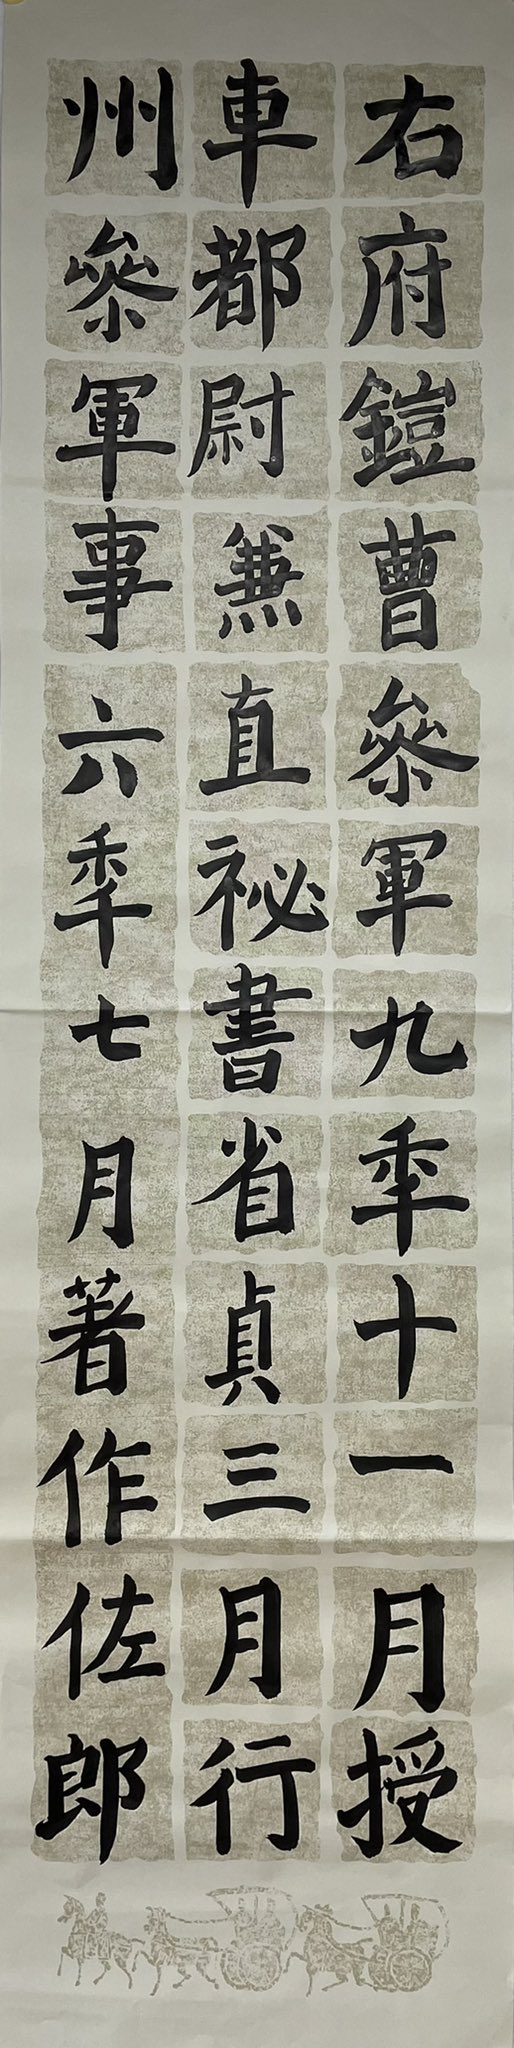 右府鎧曹叅軍九秊十一月授
車都尉兼直祕書省貞三月行
州叅軍事六秊七月著作佐郎